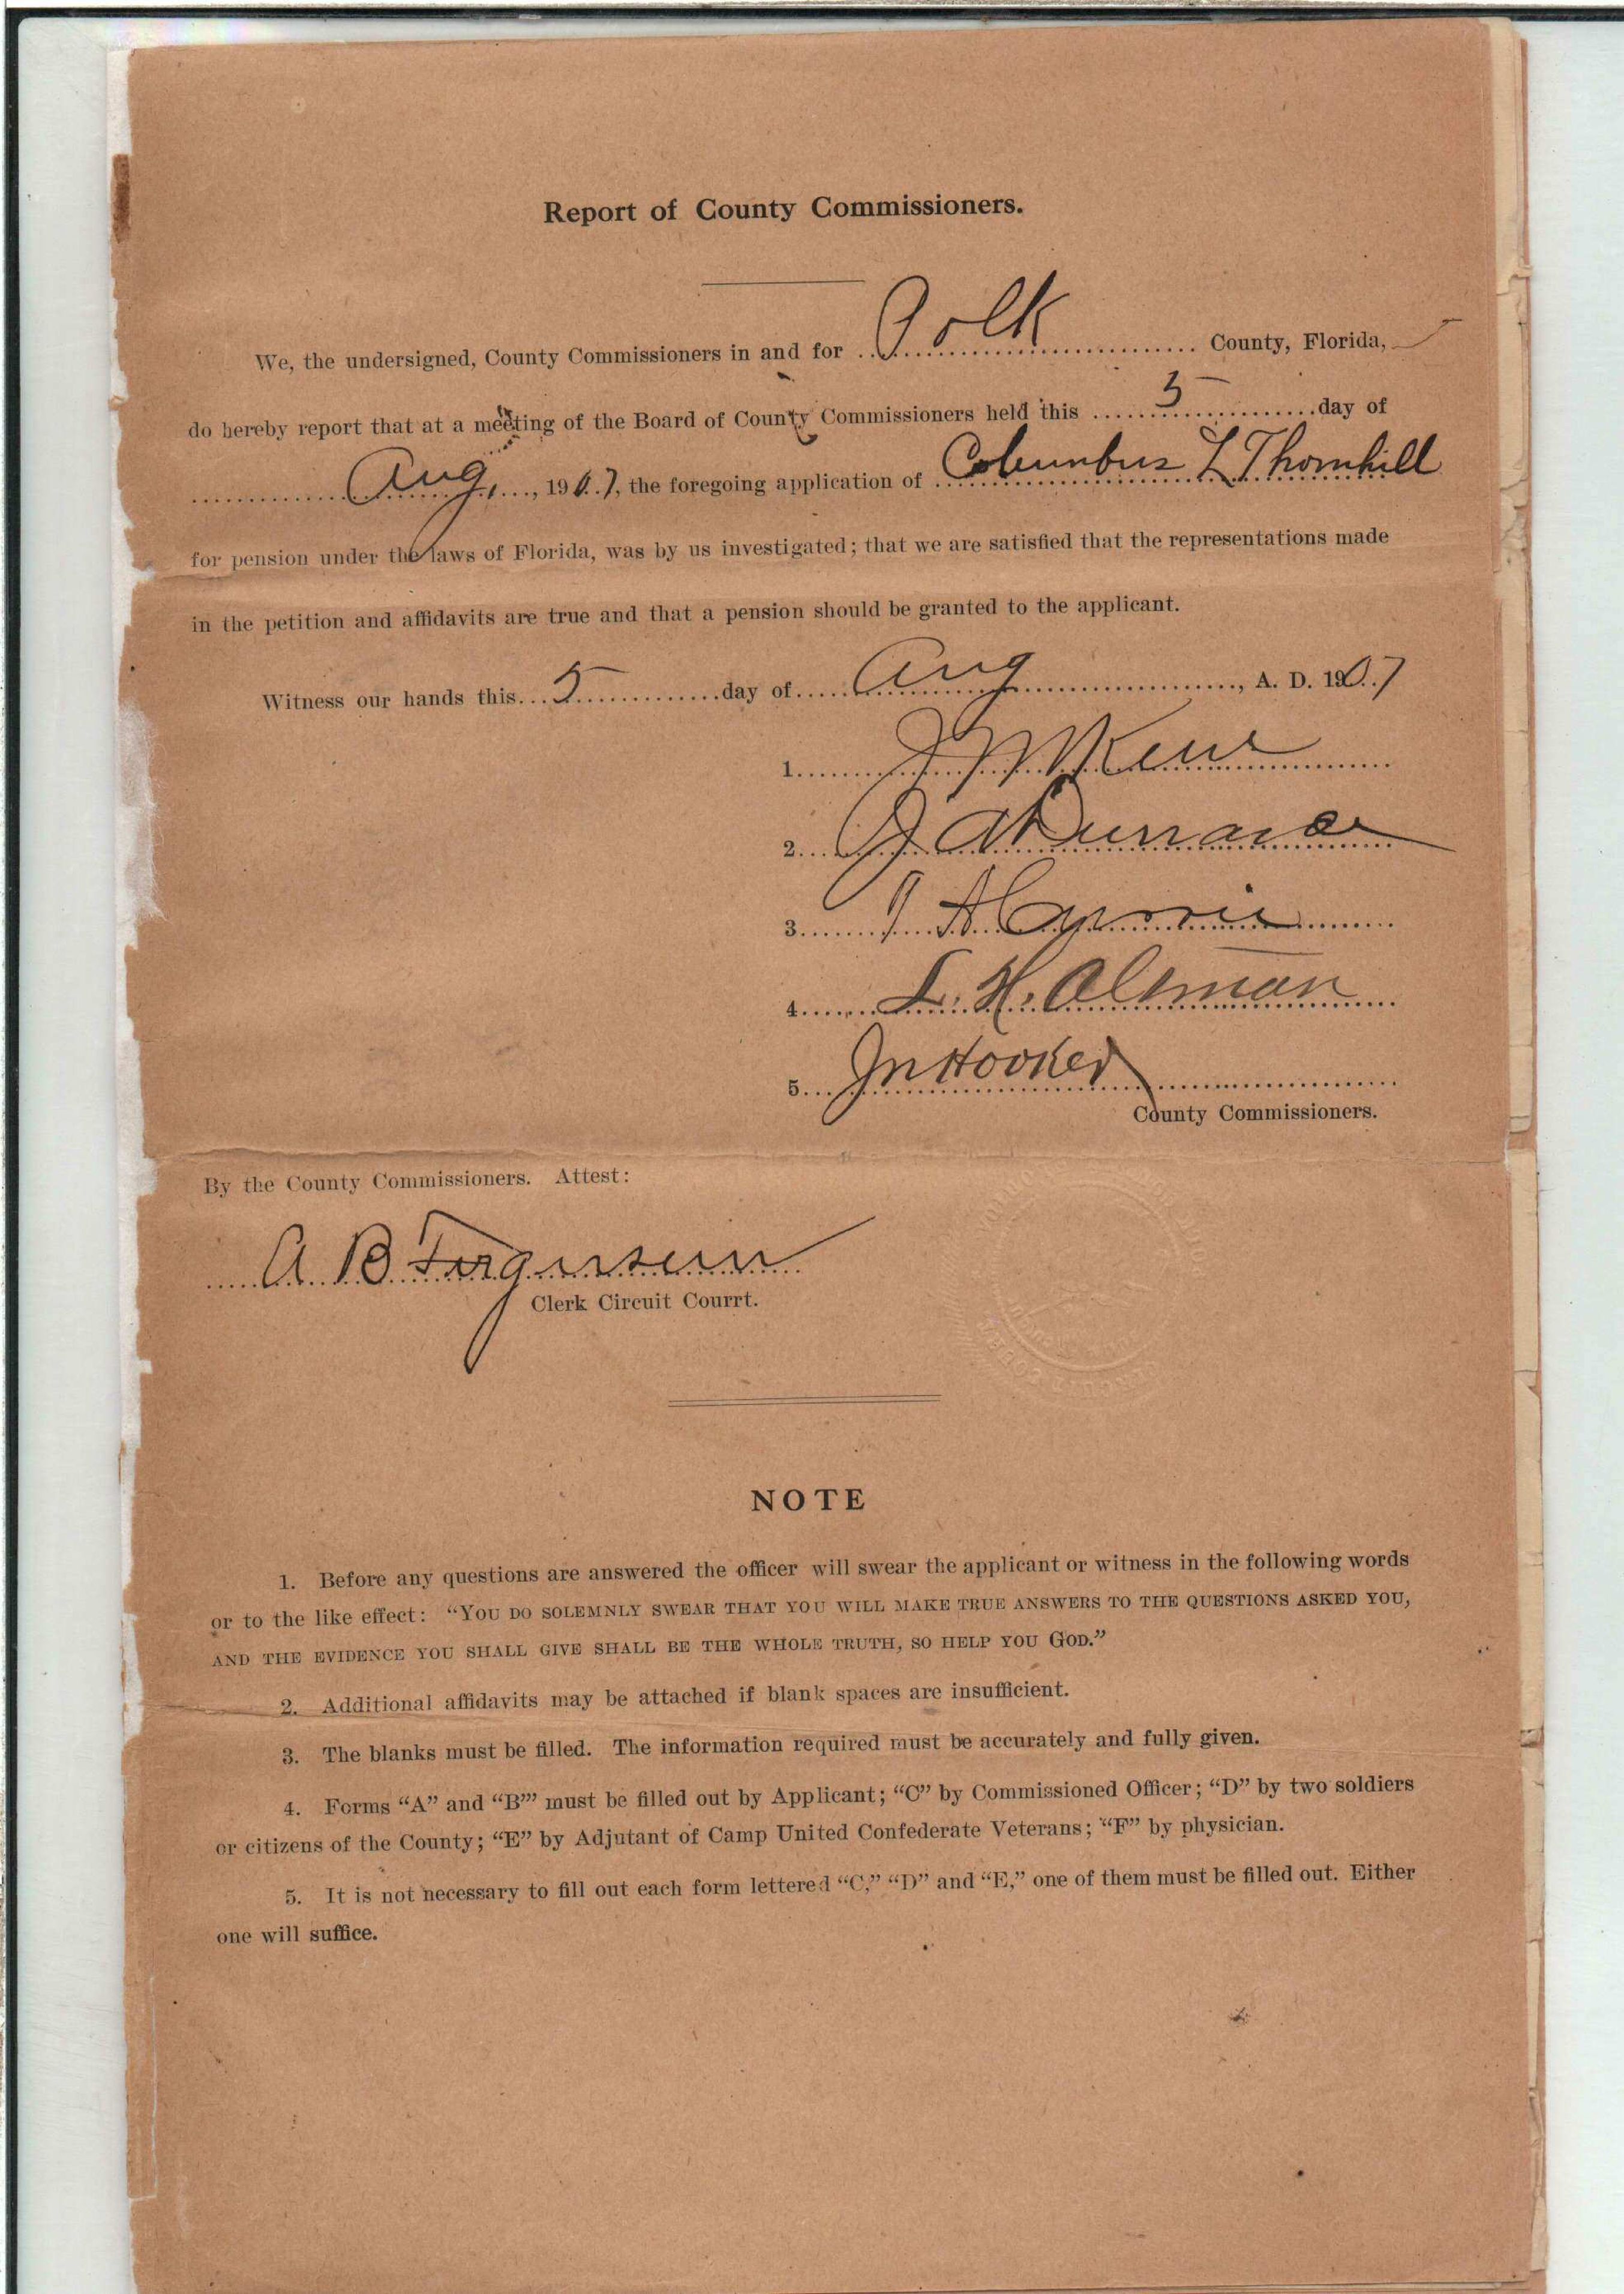 Report of County Commissioners.
We, the undersigned, County Commissioners in and for Polk County, Florida,
do hereby report that at a meeting of the Board of County Commissioners held this 5 day of
Aug, 1907, the foregoing application of Columbus L Thornhill
for pension under the laws of Florida, was by us investigated; that we are satisfied that the representations made
in the petition and affidavits are true and that a pension should be granted to the applicant.
Witness our hands this 5 day of Aug, A. D. 1907
1. J
2. J A Durrance
3. J A
4. L. H. Altman
5. J N Hooker
County Commissioners.
By the County Commissioners. Attest:
A B Ferguson
Clerk Circuit Courrt.
NOTE
1. Before any questions are answered the officer will swear the applicant or witness in the following words
or to the like effect: “YOU DO SOLEMNLY SWEAR THAT YOU WILL MAKE TRUE ANSWERS TO THE QUESTIONS ASKED YOU,
AND THE EVIDENCE YOU SHALL GIVE SHALL BE THE WHOLE TRUTH, SO HELP YOU GOD.”
2. Additional affidavits may be attached if blank spaces are insufficient.
3. The blanks must be filled. The information required must be accurately and fully given.
4. Forms “A” and “B”’ must be filled out by Applicant; “C” by Commissioned Officer; “D” by two soldiers
or citizens of the County; “E” by Adjutant of Camp United Confederate Veterans; “F” by physician.
5. It is not necessary to fill out each form lettered “C,” “D” and “E,” one of them must be filled out. Either
one will suffice.